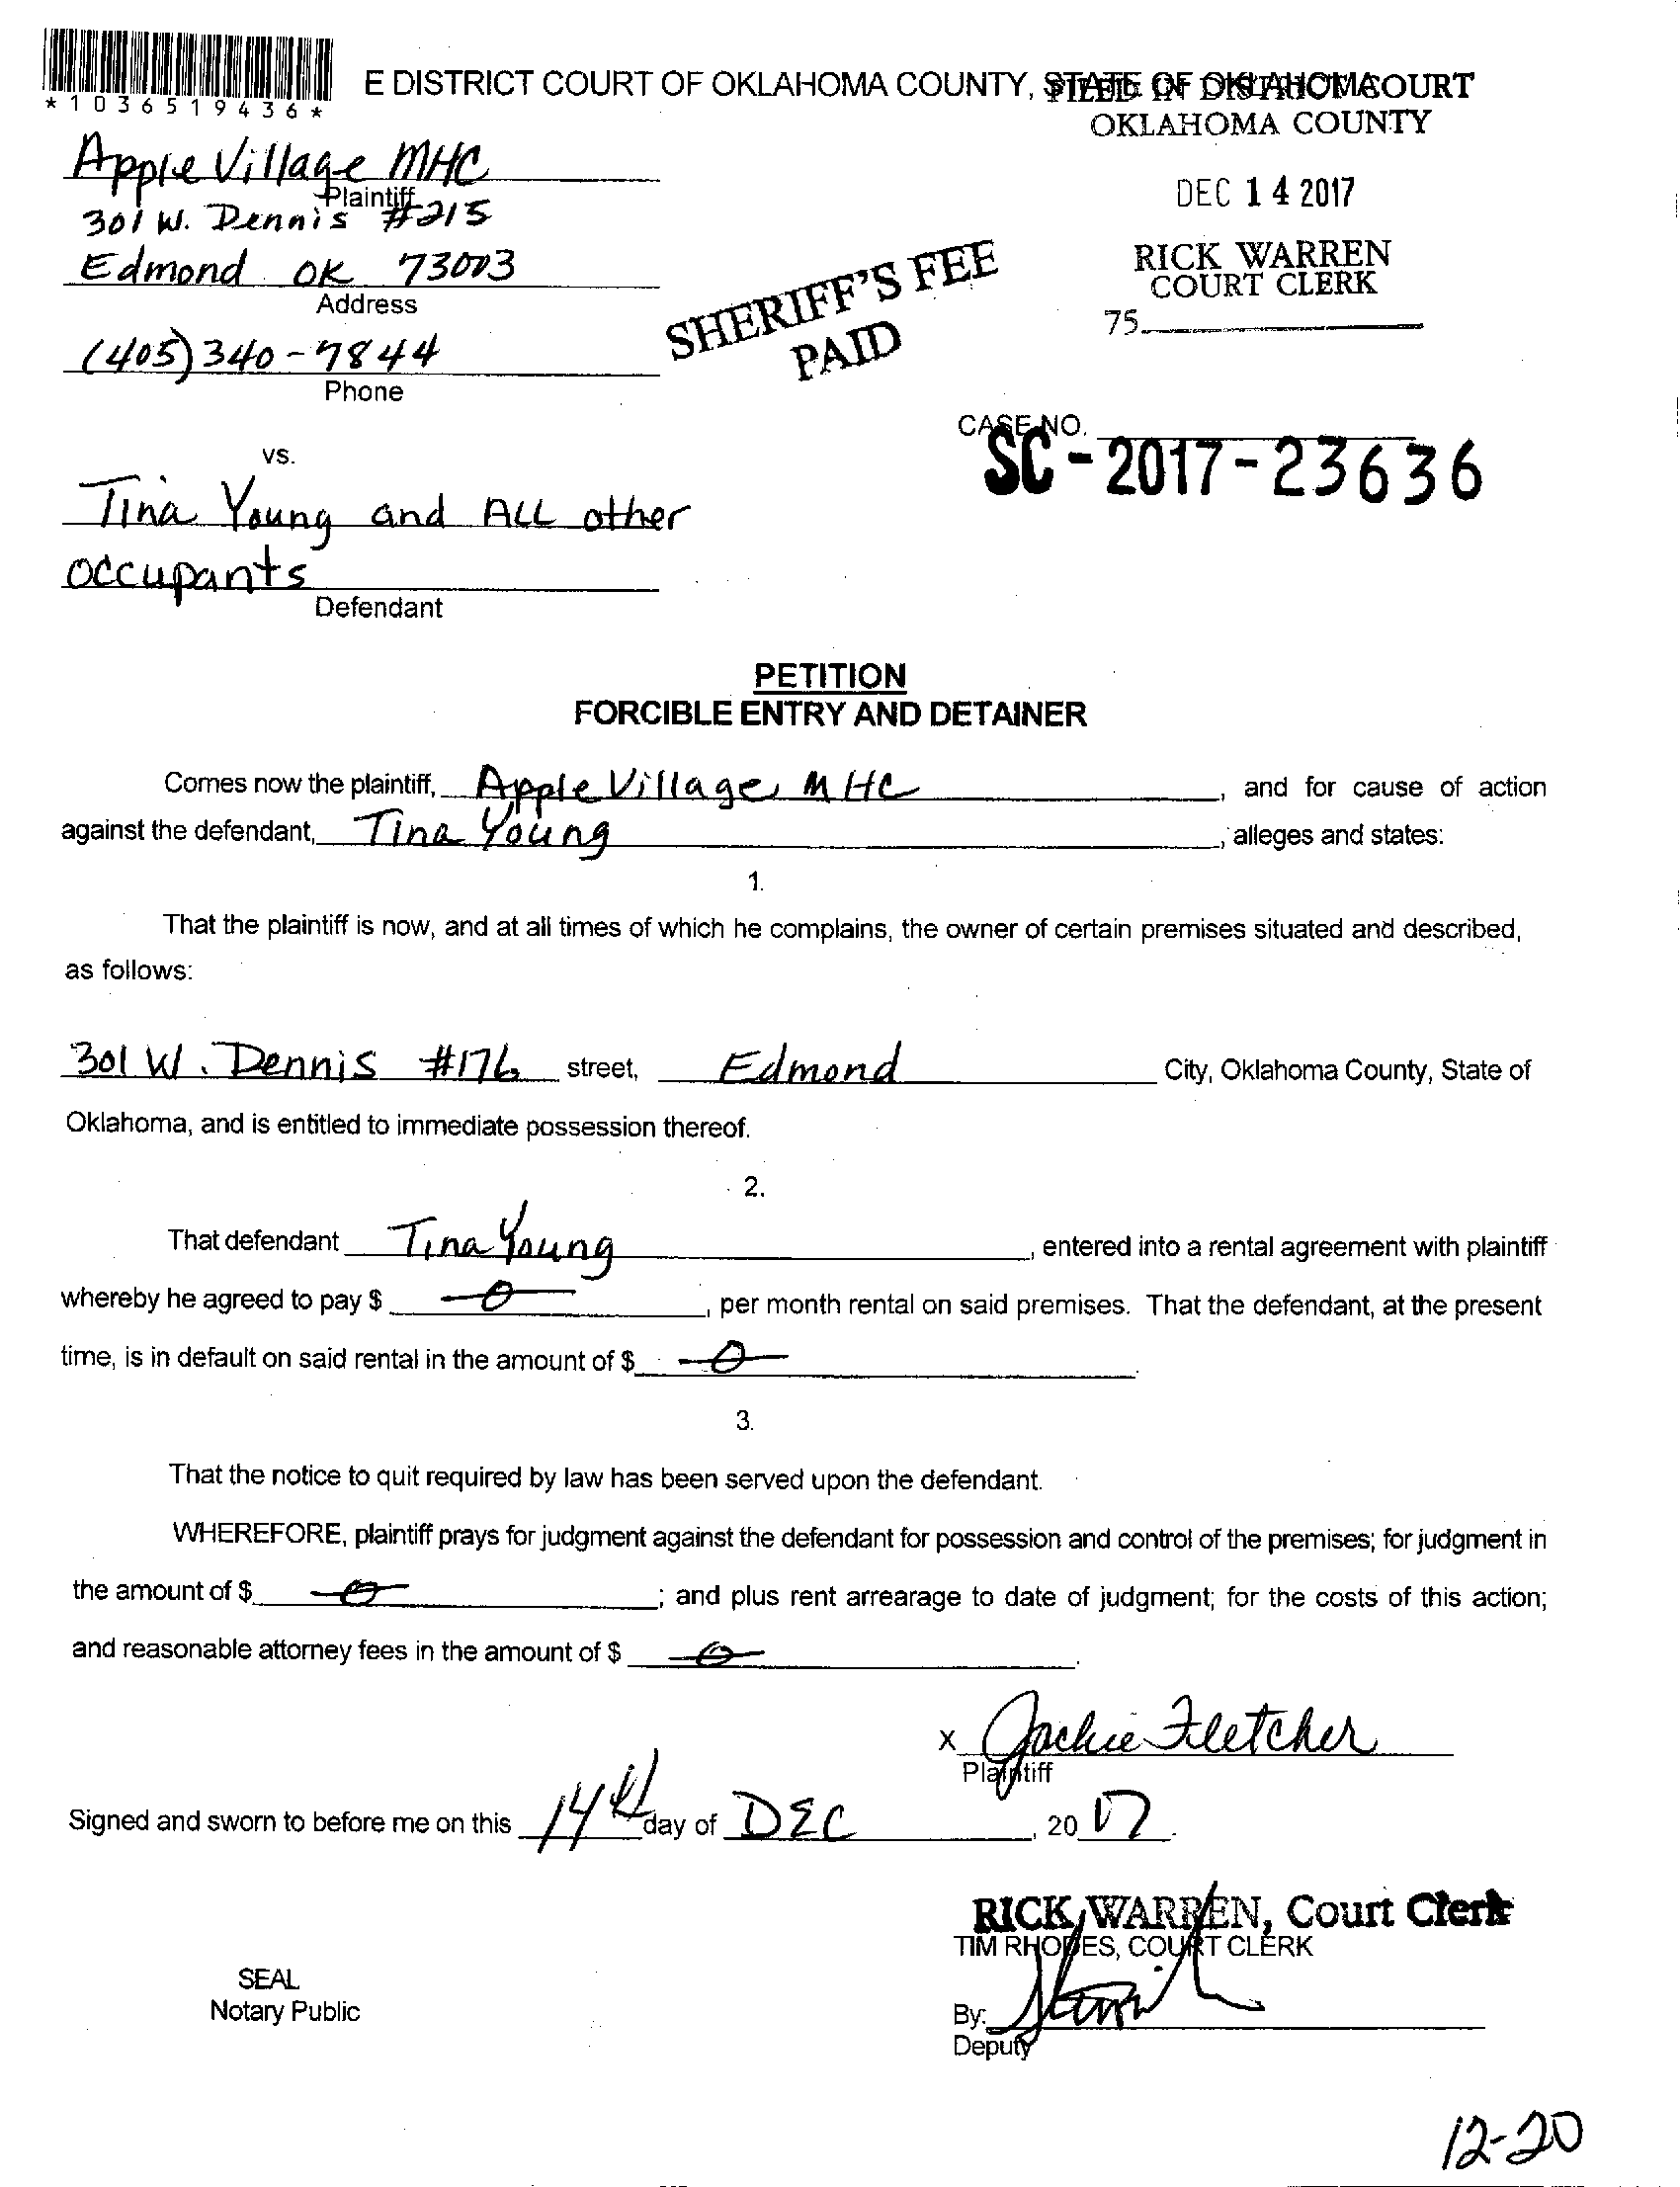 *1036519436*
E DISTRICT COURT OF OKLAHOMA COUNTY, STATE OF OKLAHOMA
FILED IN DISTRICT COURT
OKLAHOMA COUNTY
DEC 14 2017
RICK WARREN
COURT CLERK
75
Apple Village MHC
Plaintiff
301 W. Dennis #215
Edmond OK 73003
Address
(405) 340-7844
Phone
SHERIFF'S FEE
PAID
CASE NO.
SC-2017-23636
vs.
Tina Young and ALL other
occupants
Defendant
PETITION
FORCIBLE ENTRY AND DETAINER
Comes now the plaintiff, Apple Village MHC, and for cause of action
against the defendant, Tina Young, alleges and states:
1.
That the plaintiff is now, and at all times of which he complains, the owner of certain premises situated and described,
as follows:
301 W. Dennis #176 street, Edmond City, Oklahoma County, State of
Oklahoma, and is entitled to immediate possession thereof.
2.
That defendant Tina Young, entered into a rental agreement with plaintiff
whereby he agreed to pay $ 0, per month rental on said premises. That the defendant, at the present
time, is in default on said rental in the amount of $ 0.
3.
That the notice to quit required by law has been served upon the defendant.
WHEREFORE, plaintiff prays for judgment against the defendant for possession and control of the premises; for judgment in
the amount of $ 0; and plus rent arrearage to date of judgment; for the costs of this action;
and reasonable attorney fees in the amount of $ 0.
x Jackie Fletcher
Plaintiff
Signed and sworn to before me on this 14th day of DEC, 2017.
RICK WARREN, Court Clerk
TIM RHODES, COURT CLERK
SEAL
Notary Public
By:
Deputy
12-20